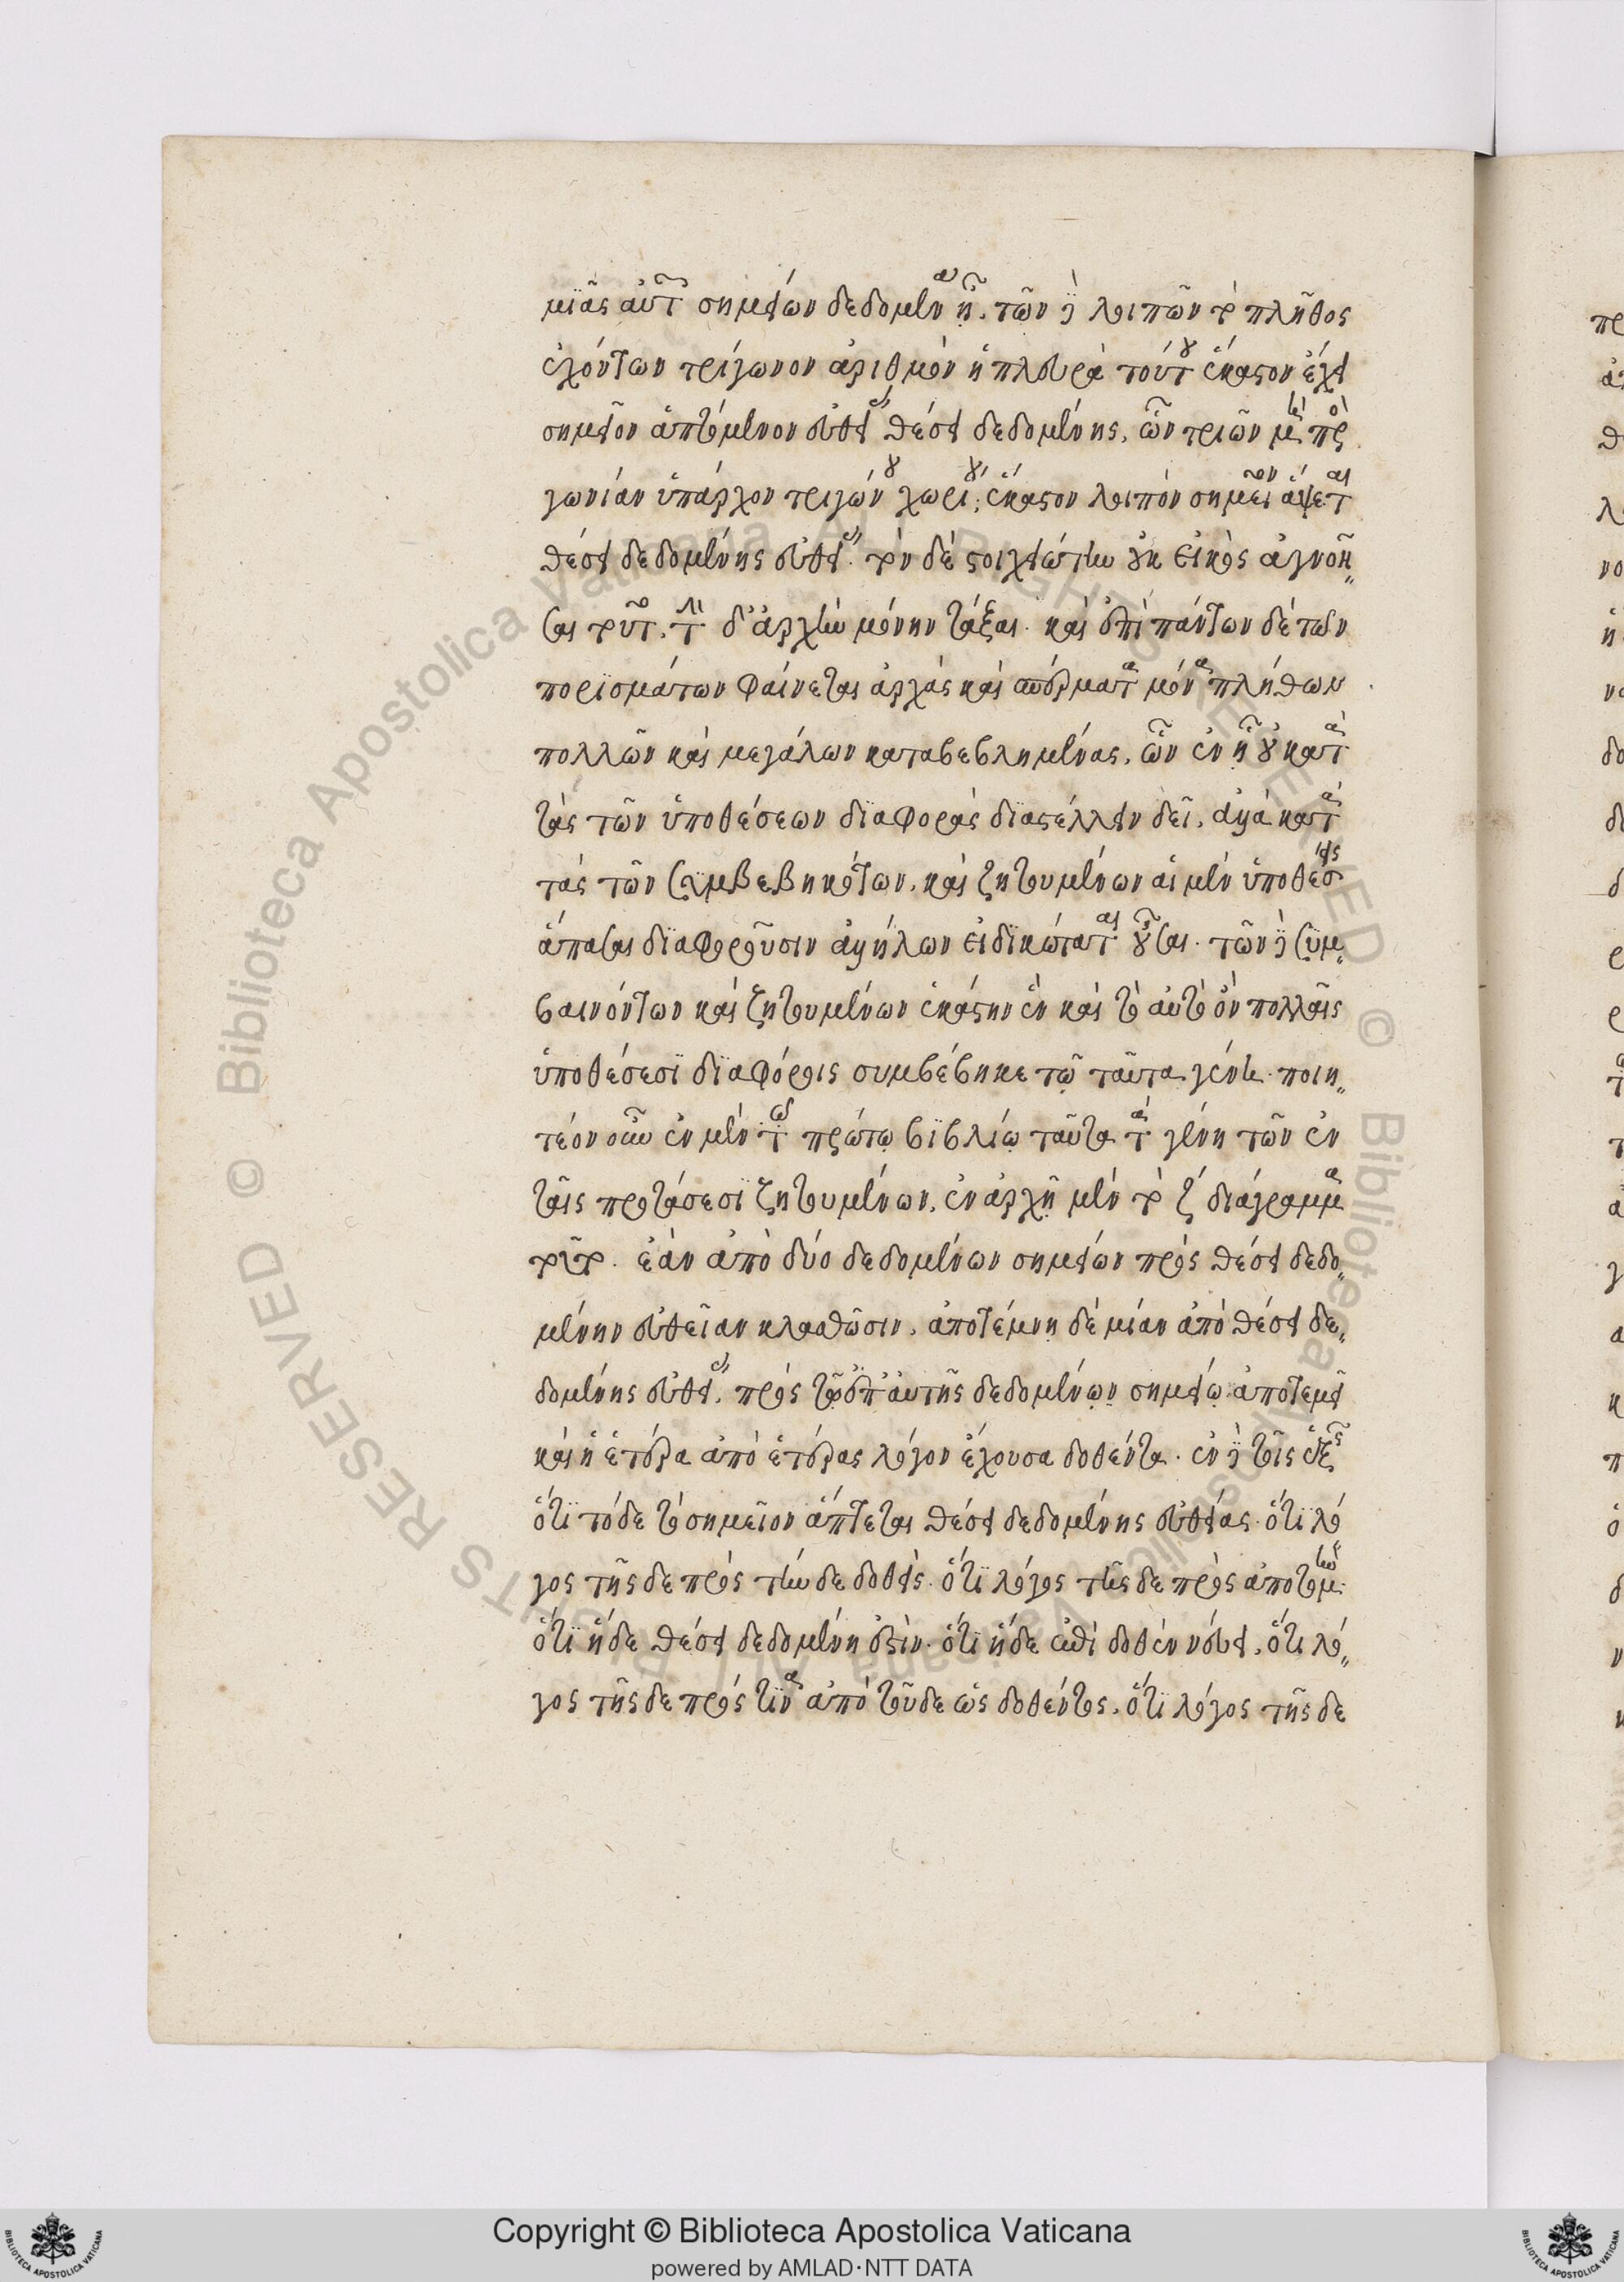 μϊᾶς αὐτῶν σημείων δεδομένα ᾖ. τῶν δὲ λοιπῶν τὸ πλῆθος
ἐχόντων τρίγωνον ἀριθμὸν ἡ πλευρὰ τούτου ἕκαστον ἔχει
σημεῖον ἁπτόμενον εὐθείας θέσει δεδομένης, ὧν τριῶν μὴ πρὸς
γωνίαν ὑπάρχον τριγώνου χωρίου, ἕκαστον λοιπὸν σημεῖον ἅψεται
θέσει δεδομένης εὐθείας. τὸν δὲ στοιχειώτην οὐκ εἰκὸς ἀγνοῆ
σαι τοῦτο. τὴν δ' ἀρχὴν μόνην τάξαι. καὶ ἐπὶ πάντων δὲ τῶν
πορϊσμάτων φαίνεται ἀρχὰς καὶ σπέρματα μόνα πλήθων
πολλῶν καὶ μεγάλων καταβεβλημένας, ὧν ἐν ᾗ οὐ κατὰ
τὰς τῶν ὑποθέσεων δϊαφορὰς δϊαστέλλειν δεῖ, ἀλλὰ κατὰ
τὰς τῶν συμβεβηκότων. καὶ ζητουμένων αἱ μὲν ὑποθέσεις
ἅπασαι δϊαφοροῦσιν ἀλλήλων εἰδϊκώταται οὖσαι. τῶν δὲ συμ
βαινόντων καὶ ζητουμένων ἑκάστην ἓν καὶ τὸ αὐτὸ ὂν πολλαῖς
ὑποθέσεσϊ δϊαφόροις συμβέβηκε τῷ ταῦτα γένει. ποιη
τέον οὖν ἐν μὲν τῷ πρώτῳ βϊβλίῳ ταῦτα τὰ γένη τῶν ἐν
ταῖς προτάσεσϊ ζητουμένων, ἐν ἀρχῇ μὲν τὸ ζ διάγραμμα
τοῦτο. ἐὰν ἀπὸ δύο δεδομένων σημείων πρὸς θέσει δεδο
μένην εὐθεῖαν κλασθῶσιν, ἀποτέμνῃ δὲ μίαν ἀπὸ θέσει δε
δομένης εὐθείας πρὸς τῷ ἐπ' αὐτῆς δεδομένῳν σημείῳ. ἀποτεμεῖ
καὶ ἡ ἑτέρα ἀπὸ ἑτέρας λόγον ἔχουσα δοθέντα. ἐν δὲ τοῖς ἑξῆς
ὅτϊ τόδε τὸ σημεῖον ἅπτεται θέσει δεδομένης εὐθείας. ὅτϊ λό
γος τῆς δε πρὸς τήν δε δοθείς. ὅτϊ λόγος τῆς δε πρὸς ἀποτομήν.
ὅτϊ ἥδε θέσει δεδομένη ἐστίν. ὅτϊ ἥδε ἐπὶ δοθὲν νεύει, ὅτι λό
γος τῆς δε πρός τϊνα ἀπὸ τοῦδε ὡς δοθέντος. ὅτϊ λόγος τῆς δε
Copyright © Biblioteca Apostolica Vaticana
powered by AMLAD·NTT DATA